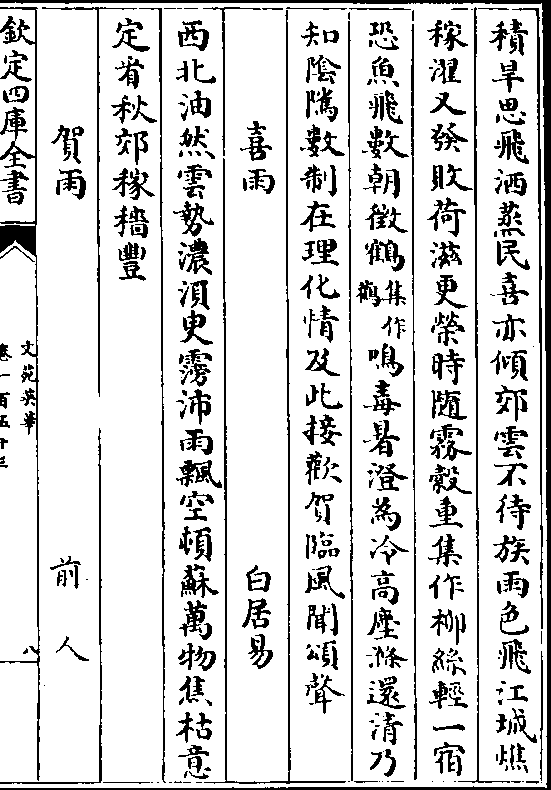 積旱思飛洒蒸民喜亦傾郊雲不待族雨色飛江城燋
稼濯又發敗荷滋更榮時随霧縠重集作柳絲輕一宿
恐魚飛數朝徵鶴集作鸛鳴毒暑澄為冷高塵滌還清乃
知陰隲數制在理化情及此接歡賀臨風聞頌聲
喜雨 白居易
西北油然雲勢濃須臾霶沛雨飄空頓蘇萬物焦枯意
定省秋郊稼穡豐
賀雨 前人
欽定四庫全書
文苑英華
卷一百五十三
八